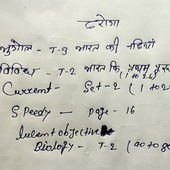 दरोगा
भूगोल - T-3 भारत की नदियाँ
विविध - T-2 भारत कि प्रथम
Current - Set-2 (1 to
Speedy - Page - 16
Lucent objective
Biology - T-2 (90 to